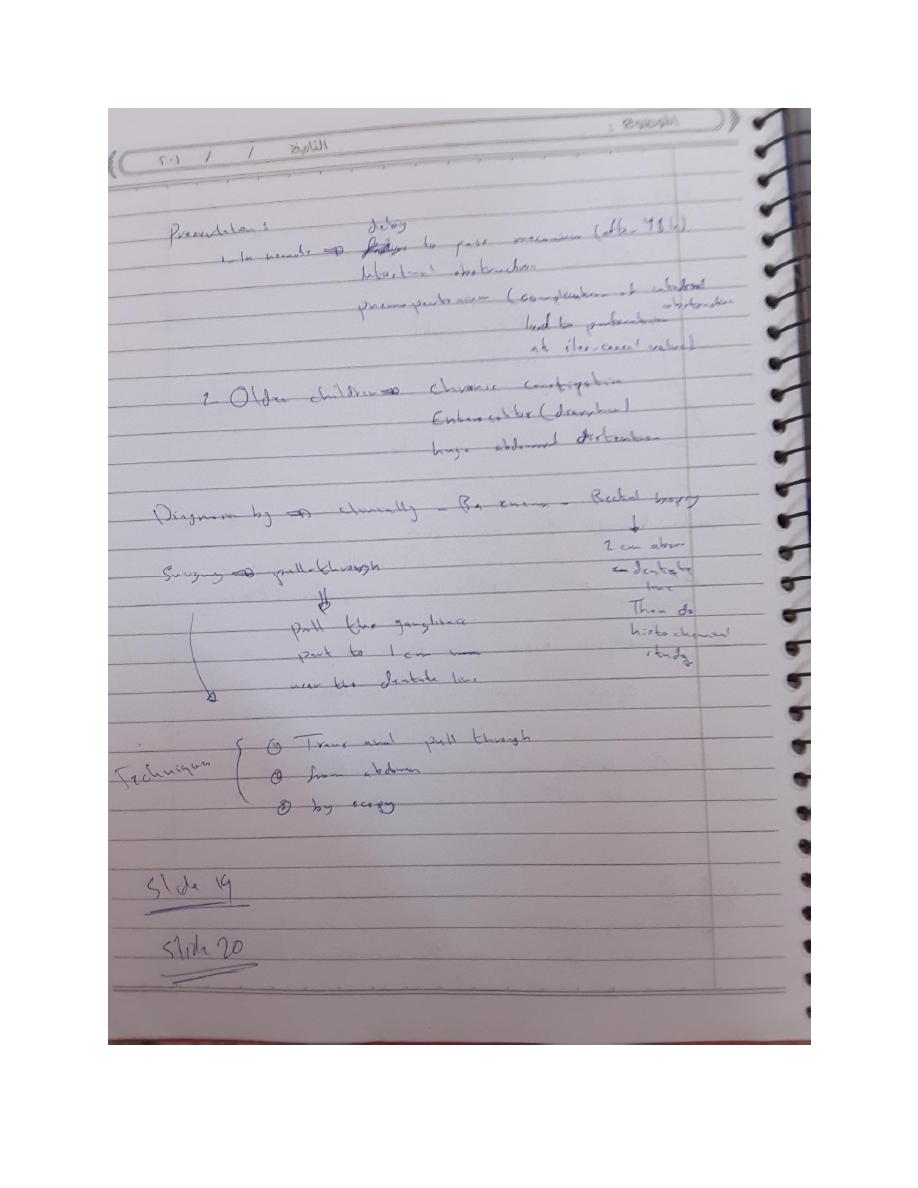 الموضوع :
التاريخ / / ٢٠١
Presentation :
delay
1- In neonate ⇒ to pass meconium (after 48 h)
Intestinal obstruction
pneumoperitonium (complication of intestinal obstruction
lead to perforation
at ileo-cecal valve)
2 Older children ⇒ chronic constipation
Enterocolitis (diarrhea)
huge abdominal distention
Diagnosis by ⇒ clinically - Ba enema - Rectal biopsy
↓
2 cm above
dentate
line
Then do
histochemical
study
Surgery ⇒ pull-through
⇓
pull the ganglionic
part to 1 cm
near the dentate line
Techniques
① Trans anal pull through
② from abdomen
③ by scopy
Slide 19
Slide 20